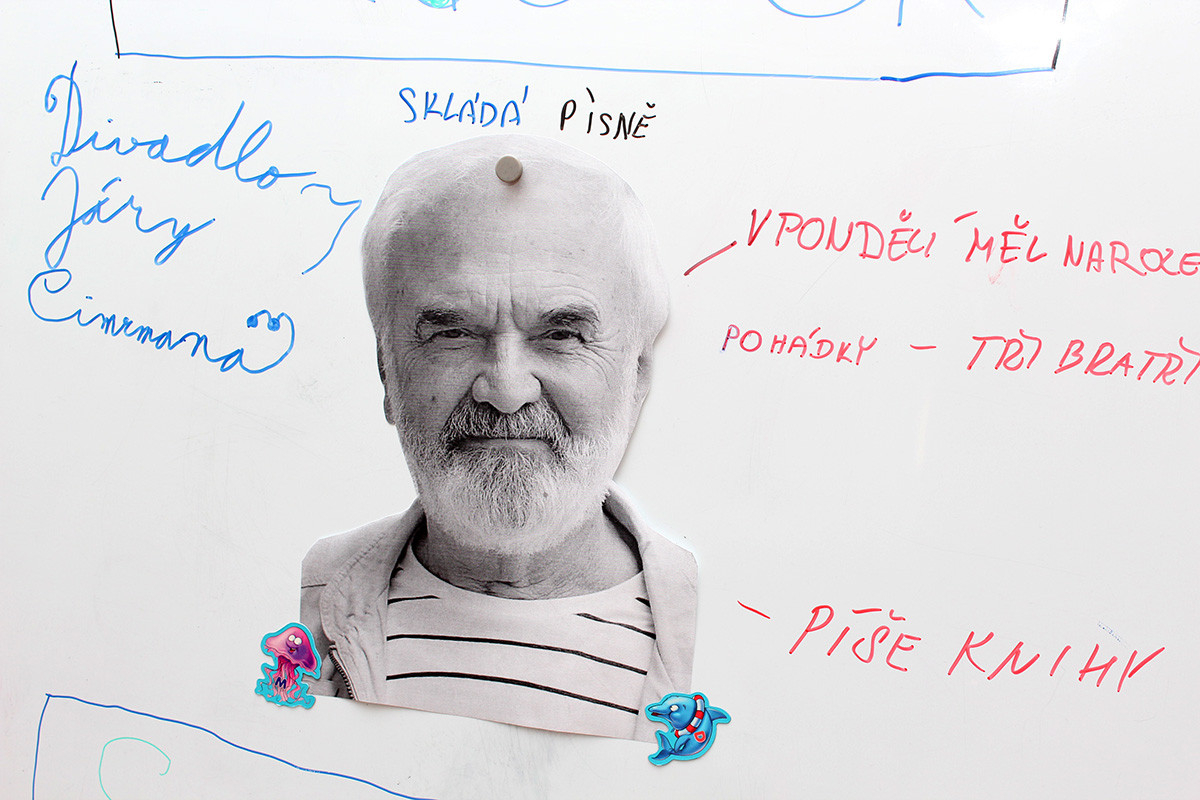 SKLÁDÁ PÍSNĚ
Divadlo
Járy
Cimrmana
V PONDĚLÍ MĚL NAROZE
POHÁDKY – TŘI BRATŘI
– PÍŠE KNIHY
M